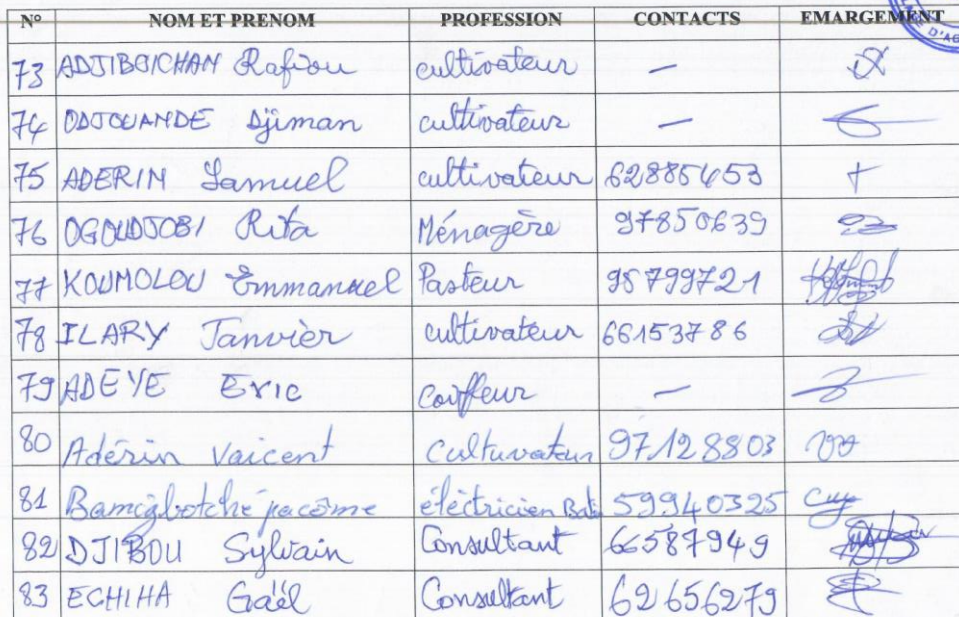 N° NOM ET PRENOM PROFESSION CONTACTS EMARGEMENT
73 ADJIBOICHAN Rafiou cultivateur —
74 ODJOUANDE Djiman cultivateur —
75 ADERIN Samuel cultivateur 62885653 +
76 OGOUDJOBI Rita Ménagère 97850639
77 KOUMOLOU Emmanuel Pasteur 95799721
78 ILARY Janvier cultivateur 66153786
79 ADEYE Eric coiffeur —
80 Adérin Vaicent Cultuvateur 97128803
81 Bamigbotché jacôme éléctricien Bati 59940325
82 DJIBOU Sylvain Consultant 66587949
83 ECHIHA Gaël Consultant 62656279